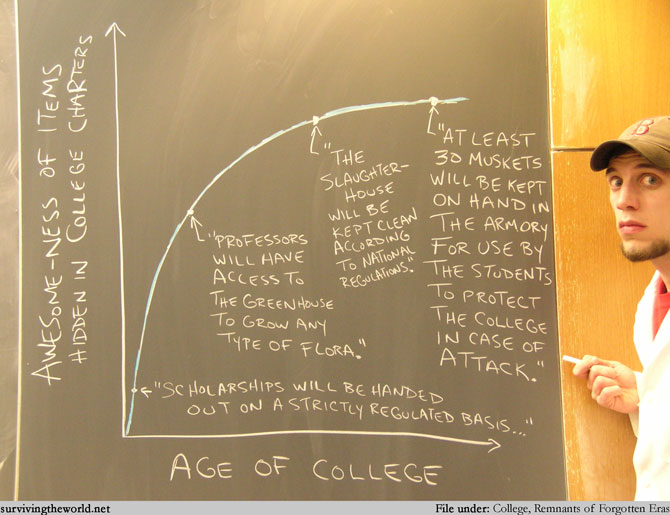 AWESOME-NESS OF ITEMS
HIDDEN IN COLLEGE CHARTERS
"THE
SLAUGHTER-
HOUSE
WILL BE
KEPT CLEAN
ACCORDING
TO NATIONAL
REGULATIONS."
"AT LEAST
30 MUSKETS
WILL BE KEPT
ON HAND IN
THE ARMORY
FOR USE BY
THE STUDENTS
TO PROTECT
THE COLLEGE
IN CASE OF
ATTACK."
"PROFESSORS
WILL HAVE
ACCESS TO
THE GREENHOUSE
TO GROW ANY
TYPE OF FLORA."
"SCHOLARSHIPS WILL BE HANDED
OUT ON A STRICTLY REGULATED BASIS..."
AGE OF COLLEGE
B
survivingtheworld.net
File under: College, Remnants of Forgotten Eras